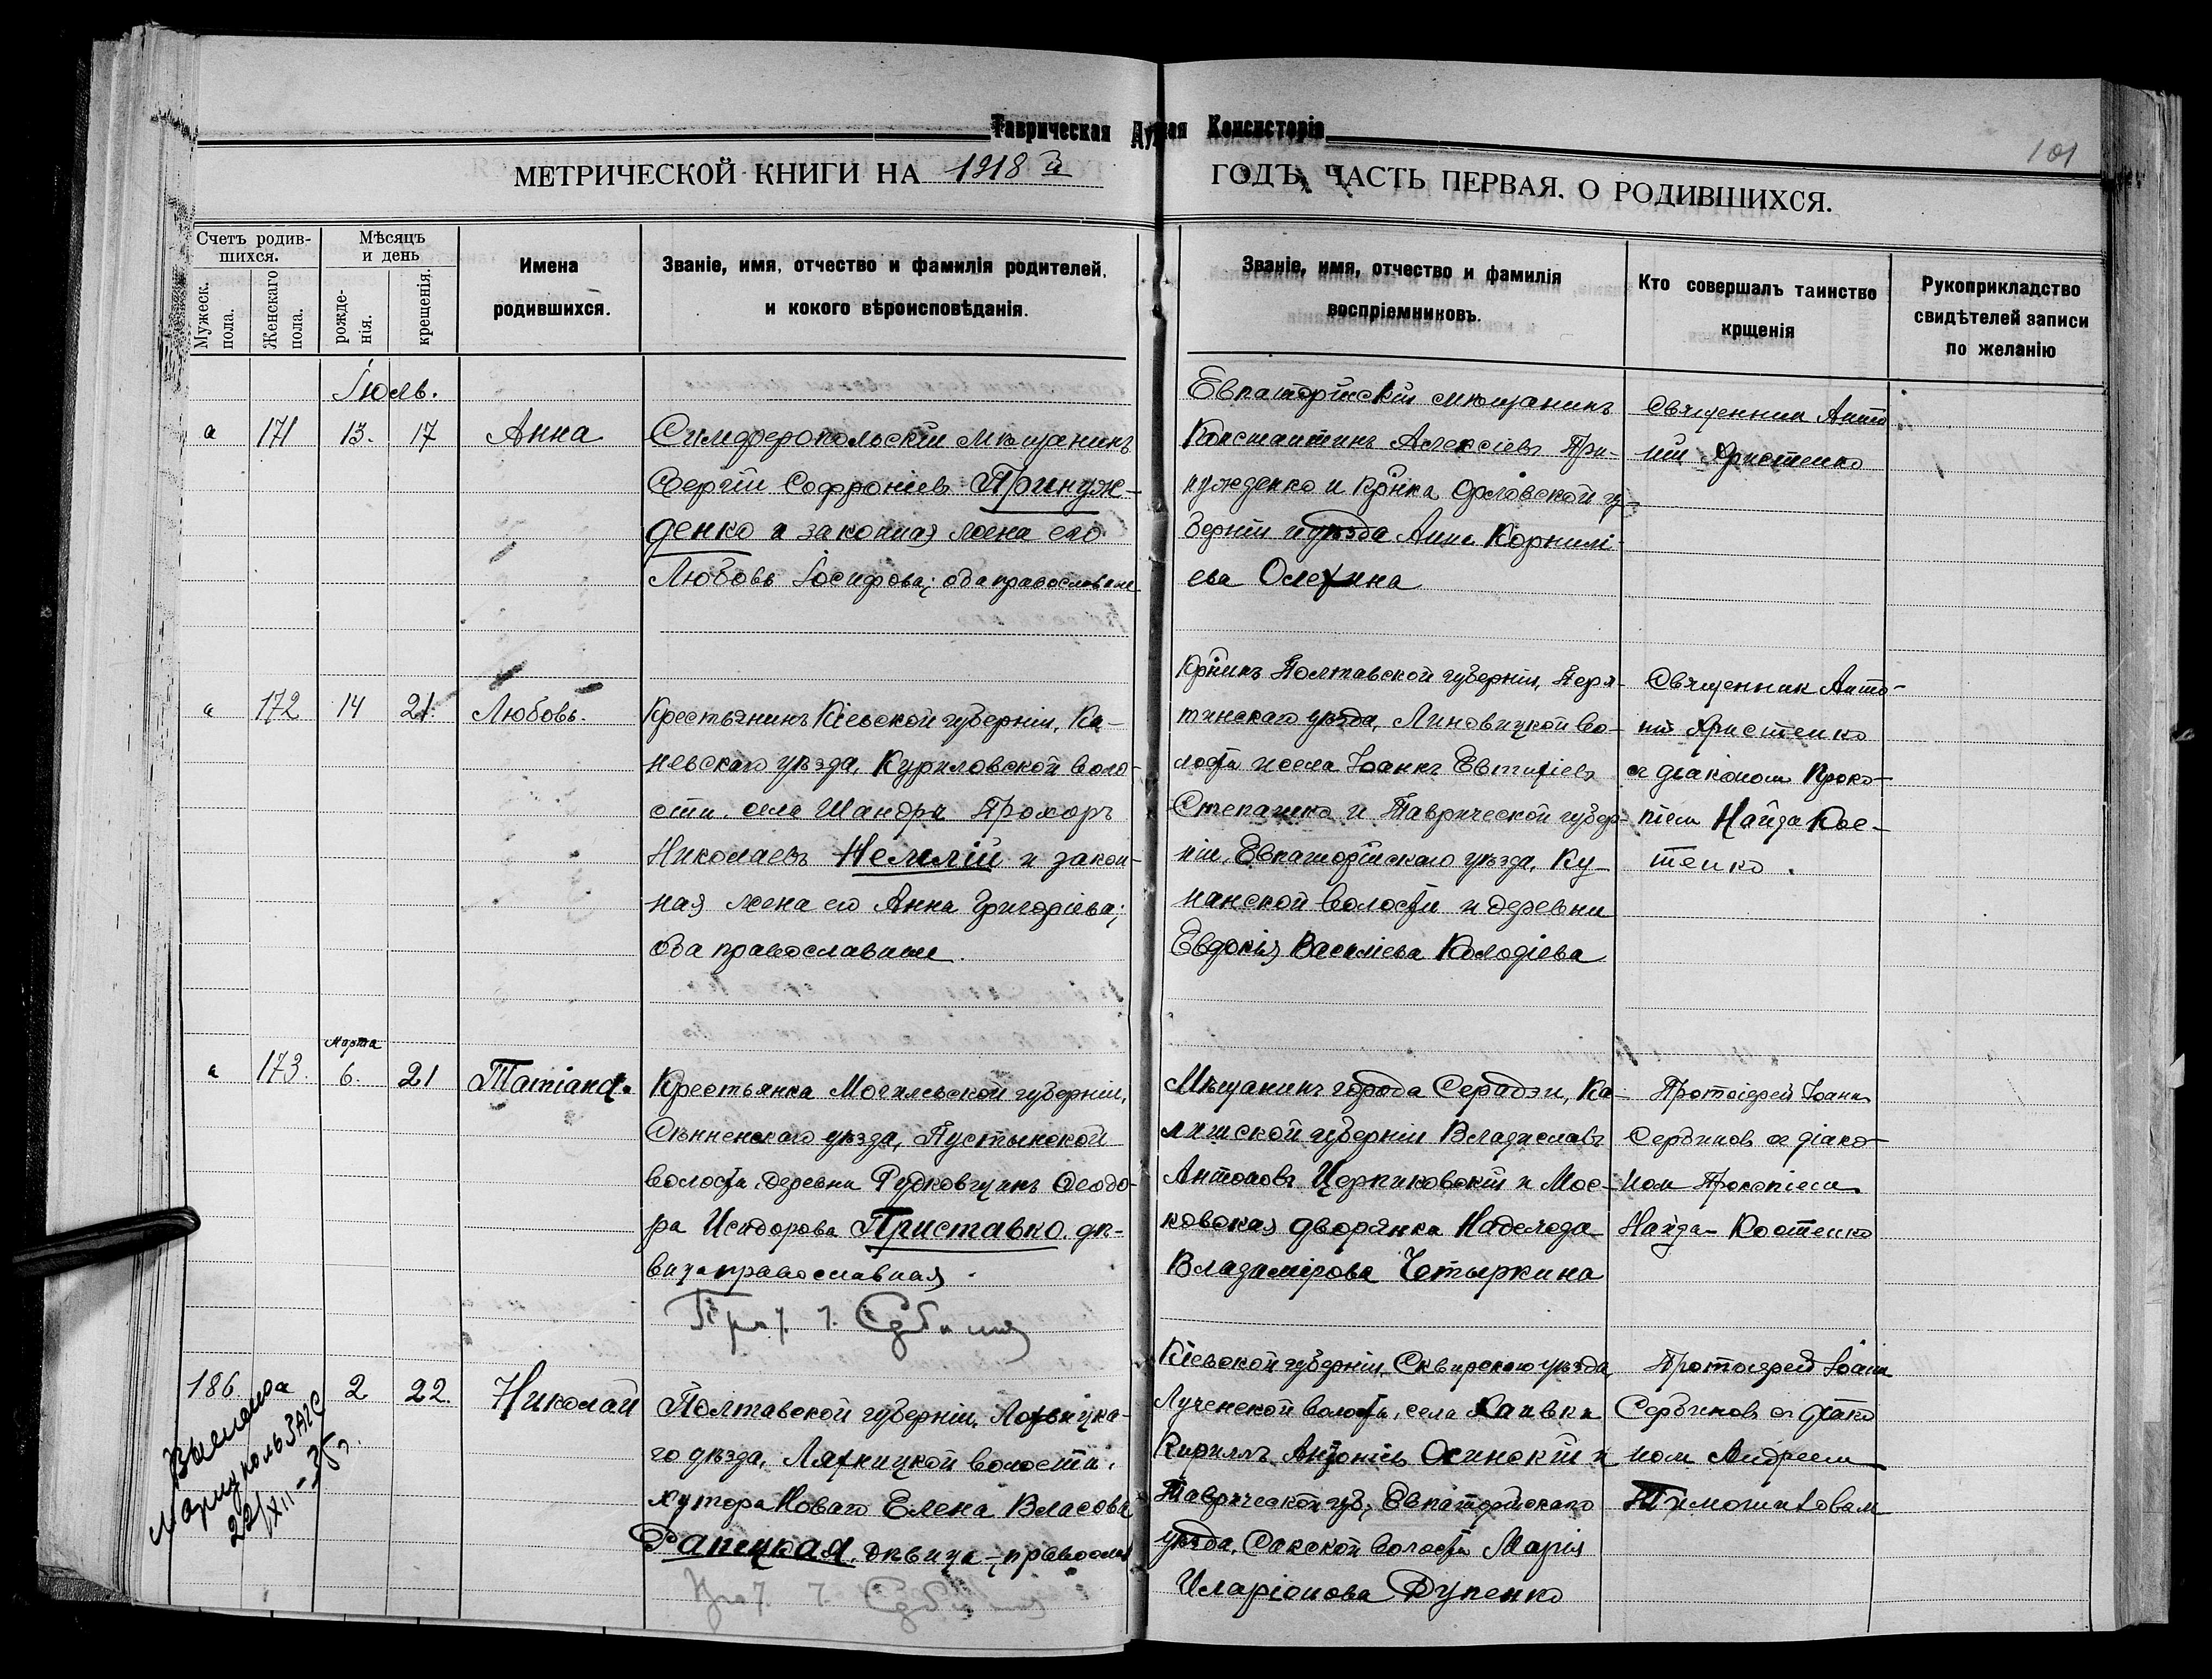 Таврическая Ду ная Консисторія
101
МЕТРИЧЕСКОЙ КНИГИ НА 1918 й
ГОДЪ, ЧАСТЬ ПЕРВАЯ. О РОДИВШИХСЯ.
Счетъ родив-
шихся.
Мужеск.
пола.
Женскаго
пола.
Мѣсяцъ
и день
рожде-
нія.
крещенія.
Имена
родившихся.
Званіе, имя, отчество и фамилія родителей,
и кокого вѣроисповѣданія.
Званіе, имя, отчество и фамилія
воспріемниковъ.
Кто совершалъ таинство
крщенія
Рукоприкладство
свидѣтелей записи
по желанію
Іюль.
171 13. 17 Анна
Симферопольскій мѣщанинъ
Сергій Софроніевъ Принуж-
денко и законная жена его
Любовь Іосифова; оба православные
Евпаторійскій мѣщанинъ
Константинъ Алексіевъ При-
нужденко и кр-нка Орловской гу-
берніи и уѣзда Анна Корнилі-
ева Олехина
Священник Анто
ній Христенко
172 14 21. Любовь.
Крестьянинъ Кіевской губерніи, Ка-
невскаго уѣзда, Куриловской воло-
сти, села Шандры Прохоръ
Николаевъ Немлій и закон-
ная жена его Анна Григоріева;
оба православные.
Кр-нинъ Полтавской губерніи, Пиря-
тинскаго уѣзда, Линовицкой во-
лости и села Іоаннъ Евтихіевъ
Степашко и Таврической губер-
ніи, Евпаторійскаго уѣзда, Ку-
нанской волости и деревни
Евдокія Василіева Колодіева
Священник Анто-
ній Христенко
с діаконом Проко-
піем Найда Кос-
тенко.
марта
173. 6. 21 Татіана.
Крестьянка Могилевской губерніи,
Сѣнненскаго уѣзда, Пустынской
волости, деревни Рудковщины Ѳеодо-
ра Исидорова Приставко, дѣ-
вица православная.
Мѣщанинъ города Серадзи, Ка-
лишской губерніи Владиславъ
Антоновъ Церпиковскій и Мос-
ковская дворянка Надежда
Владимірова Четыркина
Протоіерей Іоанн
Сербинов с діако-
ном Прокопіем
Найда-Костенко
186. 2 22. Николай
Выслано
22/XII-35 г.
Полтавской губерніи, Лохвицка-
го уѣзда, Ляхницкой волости,
хутора Новаго Елена Власова
Рапицкая, дѣвица-православ
Кіевской губерніи, Сквирскаго уѣзда,
Лученской волости, села Хаивки
Кириллъ Антоніевъ Осинскій и
Таврической губ, Евпаторійскаго
уѣзда, Сакской волости Марія
Иларіонова Дупенко
Протоіерей Іоанн
Сербинов с діако
ном Андреем
Тимошиковым